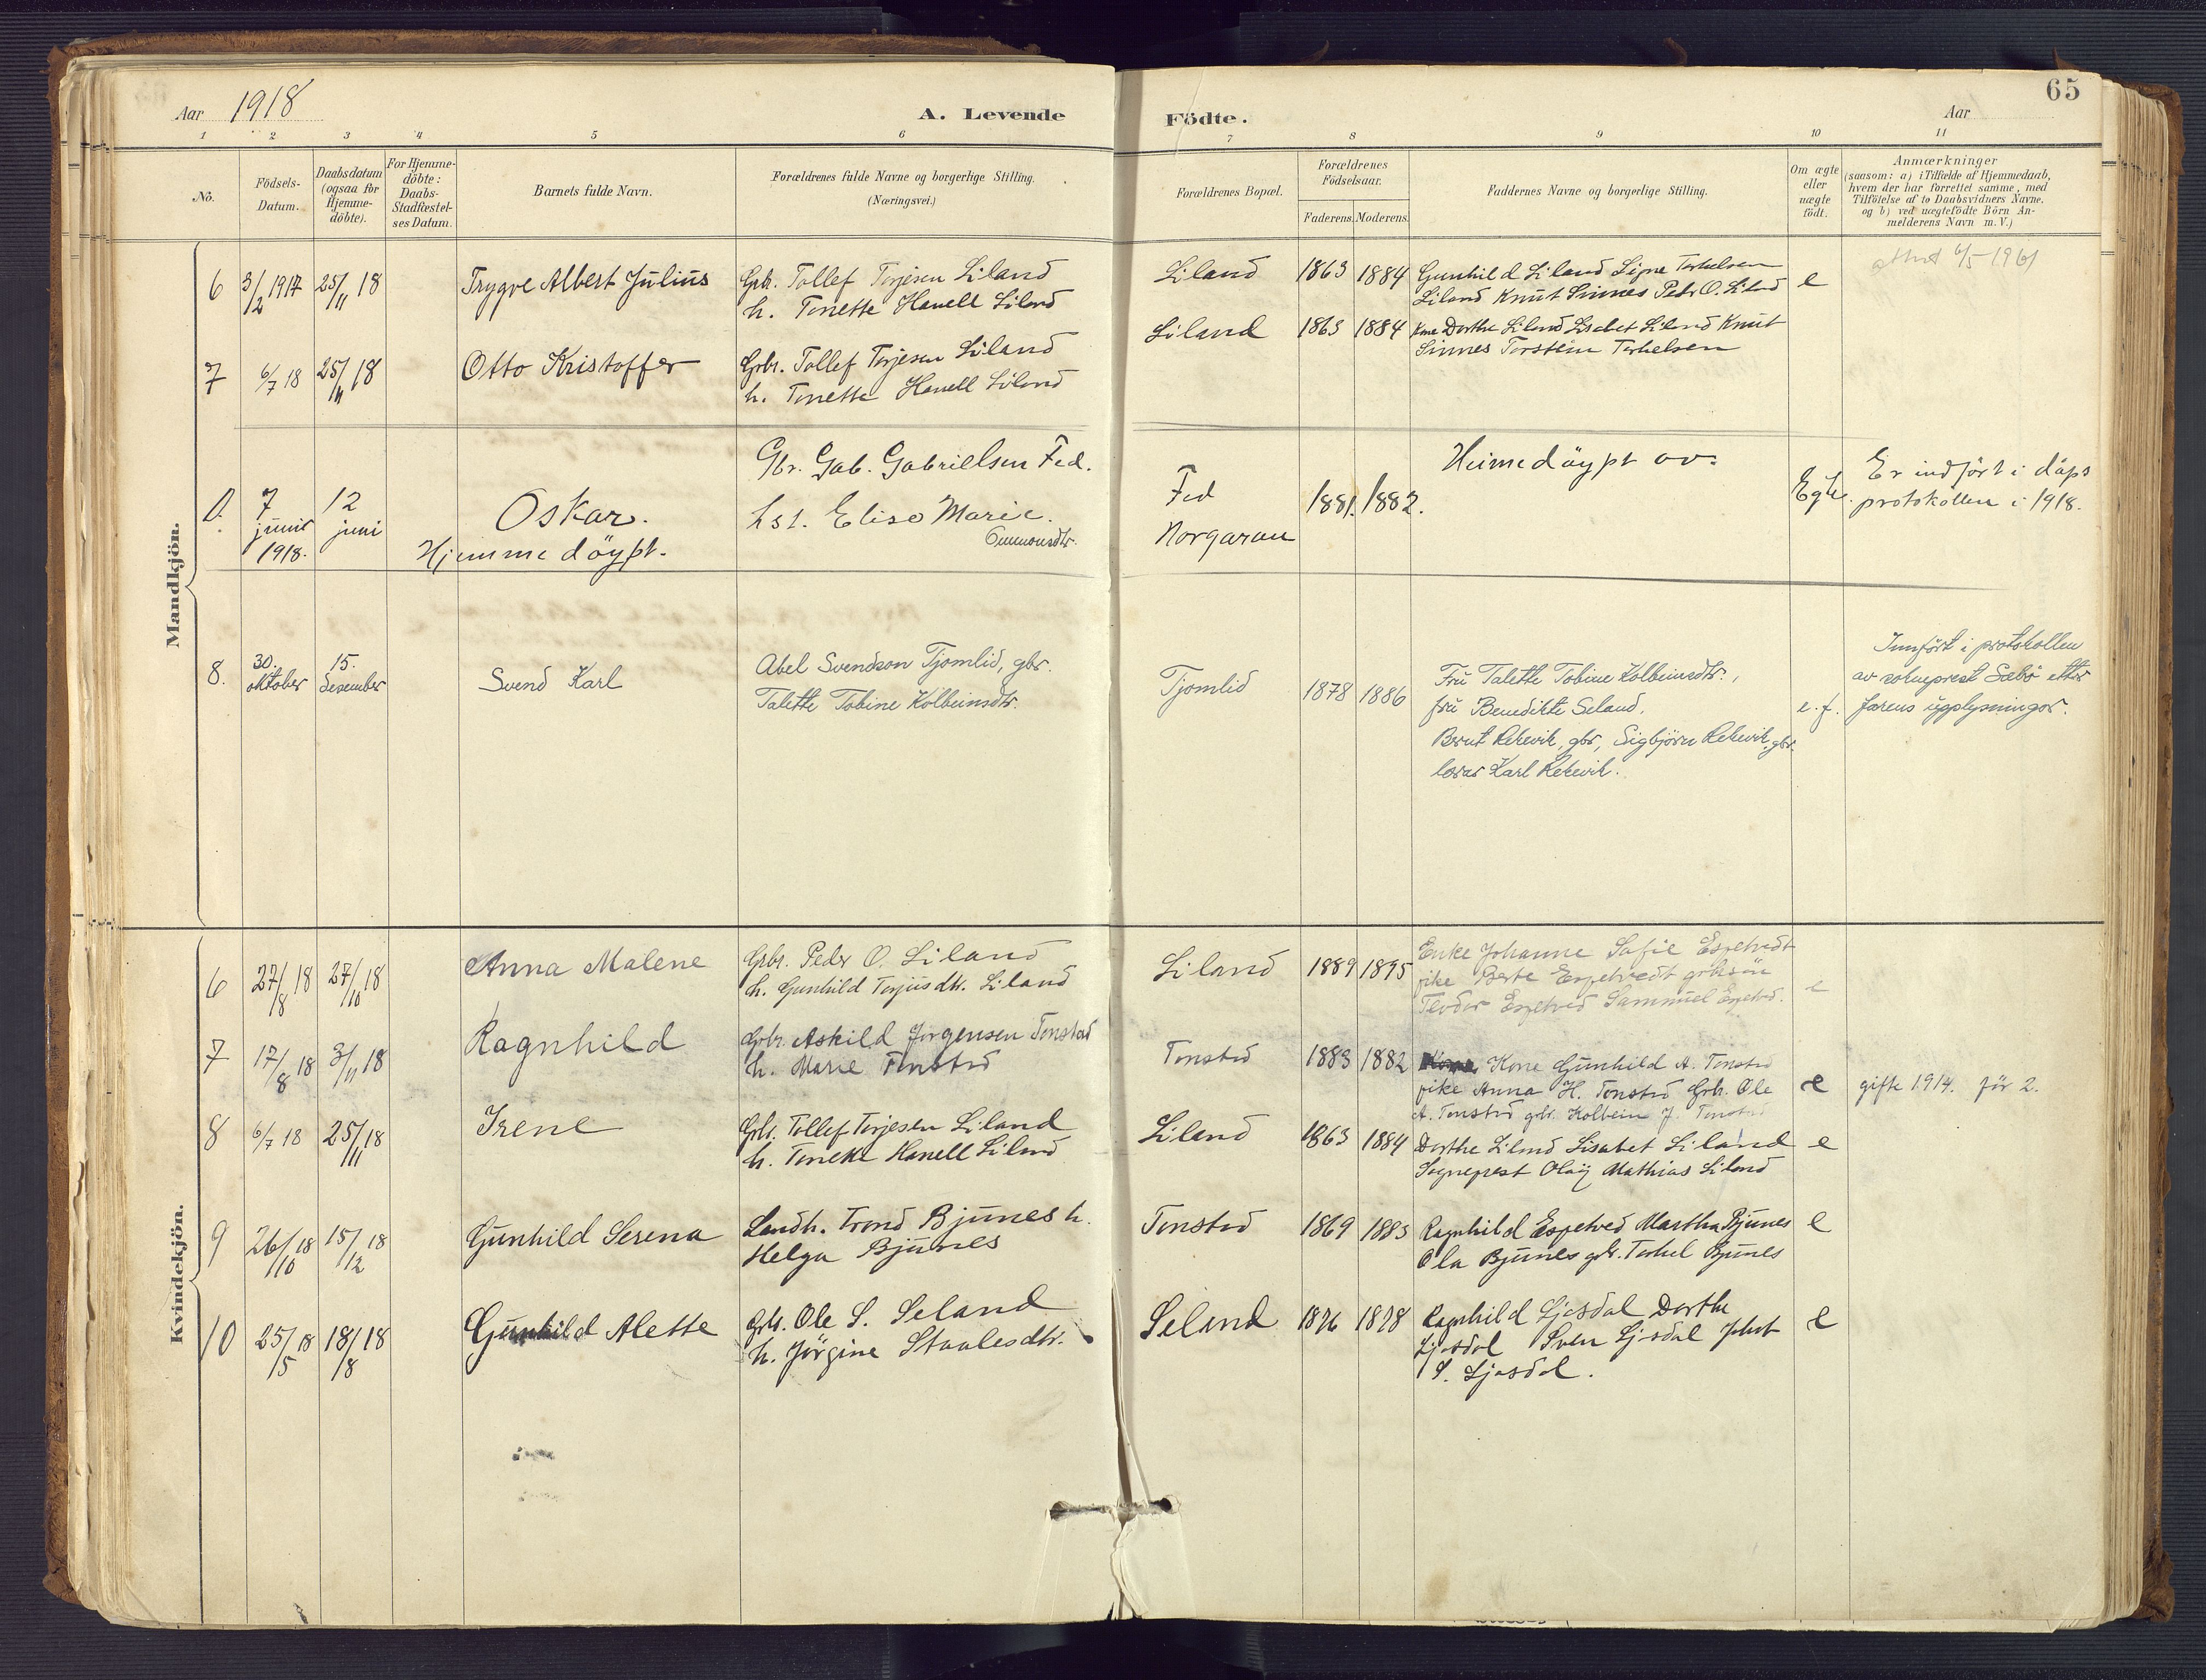 65
Aar 1918
A. Levende
Födte.
Aar
1 2 3 4 5 6 7 8 9 10 11
No.
Födsels-
Datum.
Daabsdatum
(ogsaa for
Hjemme-
döbte).
For Hjemme-
döbte:
Daabs-
Stadfæstel-
ses Datum.
Barnets fulde Navn.
Forældrenes fulde Navne og borgerlige Stilling.
(Næringsvei.)
Forældrenes Bopæl.
Forældrenes
Födselsaar.
Faderens. Moderens.
Faddernes Navne og borgerlige Stilling.
Om ægte
eller
uægte
födt.
Anmærkninger
(saasom: a) i Tilfælde af Hjemmedaab,
hvem der har forrettet samme, med
Tilföielse af to Daabsvidners Navne,
og b) ved uægtefödte Börn An-
melderens Navn m.V.)
Mandkjön.
6 3/2 1917 25/11 18 Trygve Albert Julius
Grbr. Tollef Torjesen Liland
h. Tonette Hanell Liland
Liland 1863 1884
Gunhild Liland Signe Terkelsen
Liland Knut Sinnes Peder O. Liland
e
attest 6/5-1961
7 6/7 18 25/11 18 Otto Kristoffer
Grbr. Tollef Torjesen Liland
h. Tonette Hanell Liland
Liland 1863 1884
Kone Dorthe Liland Lisabet Liland Knut
Sinnes Torstein Terkelsen
7
junil
1918.
12
juni
Oskar.
Hjemmedöypt.
Gbr. Gab. Gabrielsen Fed.
hst. Elise Marie
Ommonsdtr.
Fed
Norgaran
1881. 1882.
Heimedöypt av.
Egte.
Er indført i dåps
protokollen i 1918.
8. 30.
oktober
15.
desember
Svend Karl
Abel Svendson Tjomlid, gbr.
Talette Tobine Kolbeinsdtr.
Tjomlid 1878 1886
Fru Talette Tobine Kolbeinsdtr.,
fru Benedikte Seland,
Bernt Rekevik, gbr, Sigbjörn Rekevik, gbr.
lærar Karl Rekevik.
e. f.
Innfört i protokollen
av sokneprest Sæbö etter
farens upplysningar.
Kvindekjön.
6 27/8 18 27/10 18 Anna Malene
Grbr. Peder O. Liland
h. Gunhild Terjusdtr. Liland
Liland 1889 1895
Enke Johanne Sofie Espetvedt
pike Berte Espetvedt
Teodor Espetved Sammuel Espetved.
e
7 17/8 18 3/11 18 Ragnhild
Grbr. Askild Jørgensen Tonstad
h. Marie Tonstad
Tonstad 1883 1882
Kone Gunhild A. Tonstad
pike Anna H. Tonstad Grbr. Ole
A. Tonstad grbr. Kolbein J. Tonstad
e
gifte 1914. för 2.
8 6/7 18 25/11 18 Irene
Grbr. Tollef Torjesen Liland
h. Tonette Hanell Liland
Liland 1863 1884
Dorthe Liland Lisabet Liland
Sogneprest Olay Mathias Liland
e
9 26/10 18 15/12 18 Gunhild Serena
Landh. Trond Bjunes h.
Helga Bjunes
Tonstad 1869 1883
Ragnhild Espetved Martha Bjunes
Ola Bjunes grbr. Terkel Bjunes
e
10 25/5 18 18/8 18 Gunhild Alette
Grbr. Ole S. Seland
h. Jörgine Staalesdtr.
Seland 1876 1878
Ragnhild Ljosdal Dorthe
Ljosdal Sven Ljosdal
S. Ljosdal.
e